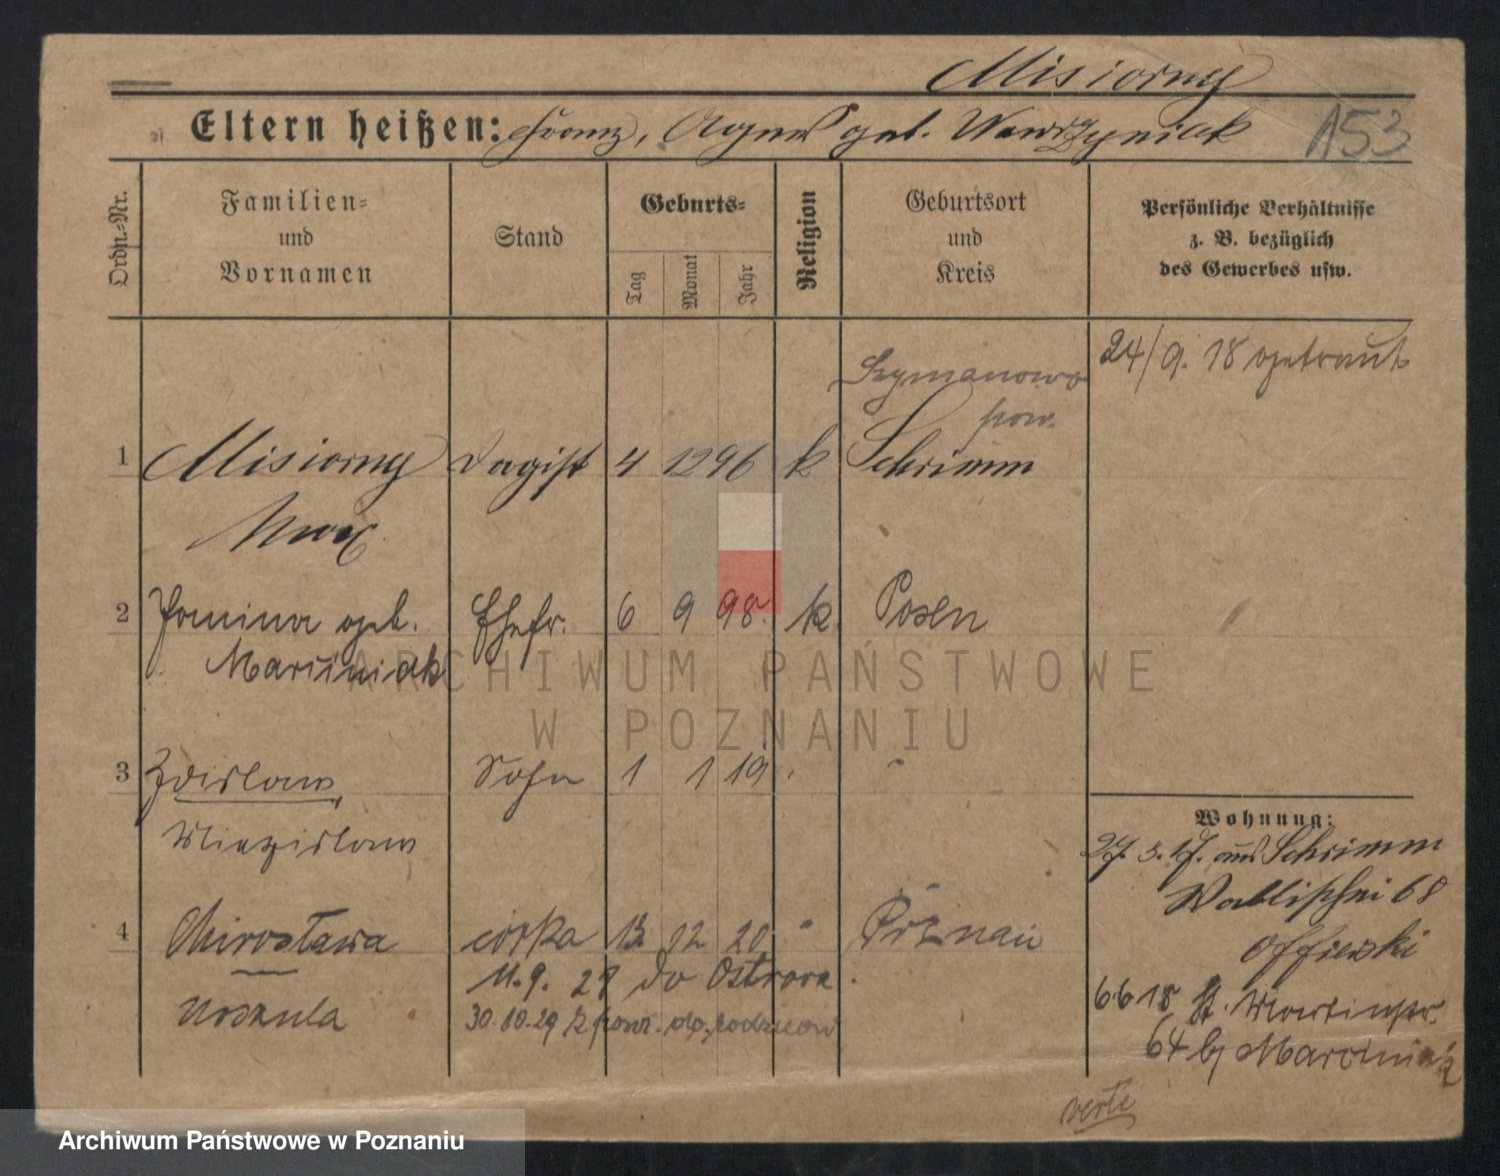 Misiorny
Eltern heißen: Franz, Agnes geb. Wawrzyniak
153
Ordn.-Nr.
Familien-
und
Vornamen
Stand
Geburts-
Tag
Monat
Jahr
Religion
Geburtsort
und
Kreis
Persönliche Verhältnisse
z. B. bezüglich
des Gewerbes usw.
24/9. 18 getraut
Szymanowo
pow.
1 Misiorny 4 12 96 k Schrimm
Max
2 geb. Ehefr. 6 9 98. k. Posen
Marciniak
3 Zdislaw, Sohn 1 1 19
Miezislaw
4 Mirosława córka 13 12 20 " Poznań
11.9. 29 do Ostrowa
Urszula
30.10.29 z pow. do rodziców
Wohnung:
27. 3. 17. aus Schrimm
Wallischei 68
6.6 18 St. Martinstr.
64 b/ Marciniak
verte
ARCHIWUM PAŃSTWOWE
W POZNANIU
Archiwum Państwowe w Poznaniu